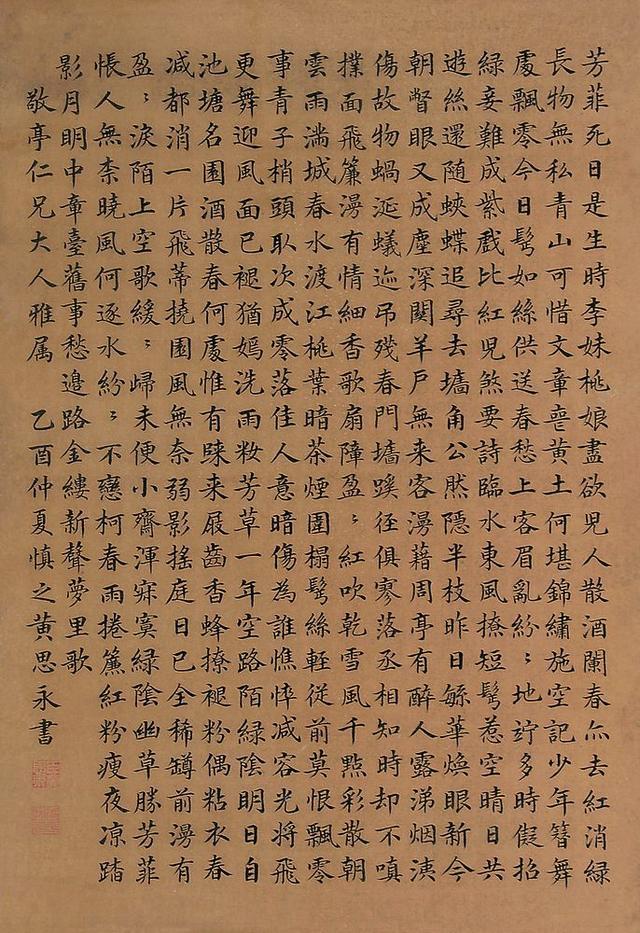 芳菲死日是生時李妹桃娘盡欲兒人散酒闌春亦去紅消綠
長物無私青山可惜文章喪黃土何堪錦繡施空記少年簪舞
處飄零今日鬂如絲供送春愁上客眉亂紛〻地竚多時假招
綠妾難成紫戲比紅兒煞要詩臨水東風撩短鬂惹空晴日共
遊絲還随蛺蝶追尋去墻角公然隱半枝昨日緐華煥眼新今
朝瞥眼又成塵深關羊戶無来客漫藉周亭有醉人露涕烟洟
傷故物蝸涎蟻迹弔殘春門墻蹊徑俱寥落丞相知時却不嗔
撲面飛簾漫有情細香歌扇障盈〻紅吹乾雪風千點彩散朝
雲雨滿城春水渡江桃葉暗茶煙圍榻鬂絲輕従前莫恨飄零
事青子梢頭取次成零落佳人意暗傷為誰憔悴减容光將飛
更舞迎風面已褪猶嫣洗雨妝芳草一年空路陌綠陰明日自
池塘名園酒散春何處惟有歸来屐齒香蜂撩褪粉偶粘衣春
减都消一片飛蒂撓園風無奈弱影搖庭日已全稀罇前漫有
盈〻淚陌上空歌緩〻歸未便小齋渾寂寞綠陰幽草勝芳菲
悵人無柰曉風何逐水紛〻不戀柯春雨捲簾紅粉瘦夜凉踏
影月明中章臺舊事愁邊路金縷新聲夢里歌
敬亭仁兄大人雅属 乙酉仲夏慎之黃思永書